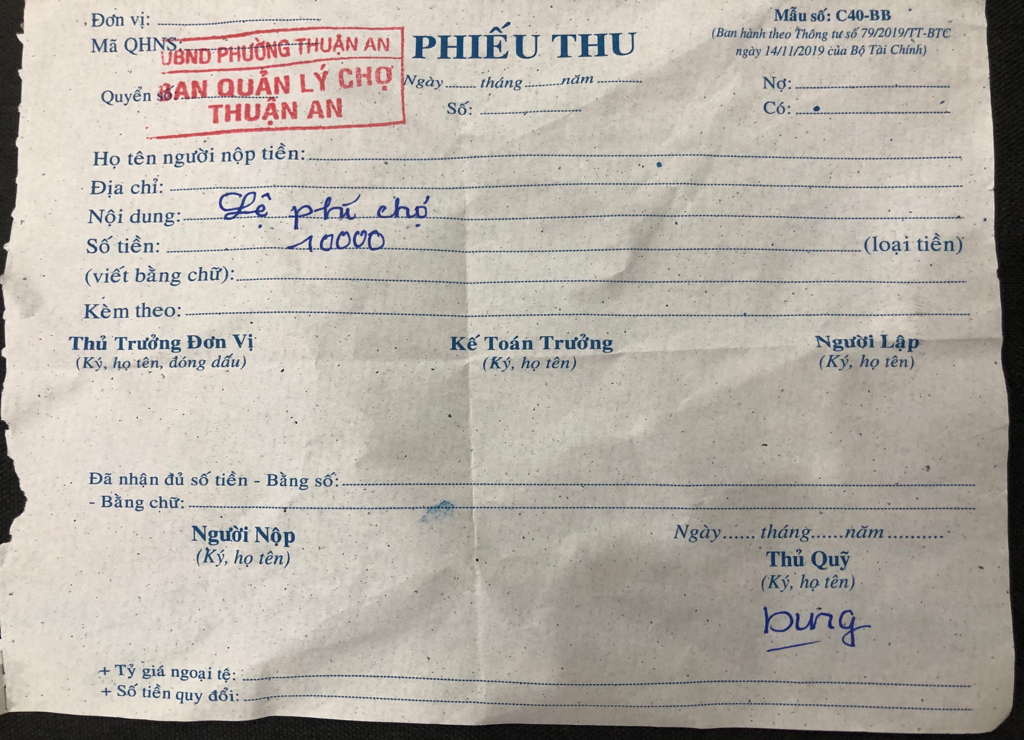 Đơn vị:
Mã QHNS:
UBND PHƯỜNG THUẬN AN
BAN QUẢN LÝ CHỢ
THUẬN AN
Quyển số:
PHIẾU THU
Ngày ...... tháng ...... năm ......
Số:
Mẫu số: C40-BB
(Ban hành theo Thông tư số 79/2019/TT-BTC
ngày 14/11/2019 của Bộ Tài Chính)
Nợ:
Có:
Họ tên người nộp tiền:
Địa chỉ:
Nội dung: Lệ phí chợ
Số tiền: 10000 (loại tiền)
(viết bằng chữ):
Kèm theo:
Thủ Trưởng Đơn Vị Kế Toán Trưởng Người Lập
(Ký, họ tên, đóng dấu) (Ký, họ tên) (Ký, họ tên)
Đã nhận đủ số tiền - Bằng số:
- Bằng chữ:
Người Nộp
(Ký, họ tên)
Ngày...... tháng......năm..........
Thủ Quỹ
(Ký, họ tên)
+ Tỷ giá ngoại tệ:
+ Số tiền quy đổi: